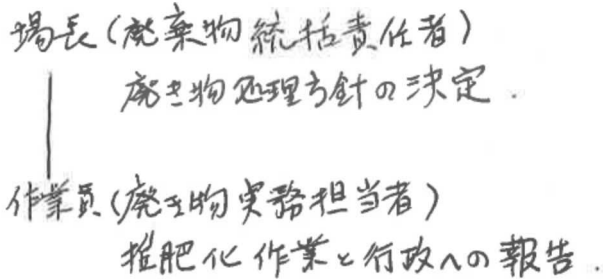 場長(廃棄物統括責任者)
廃き物処理方針の決定.
作業員(廃き物実務担当者)
堆肥化作業と行政への報告.